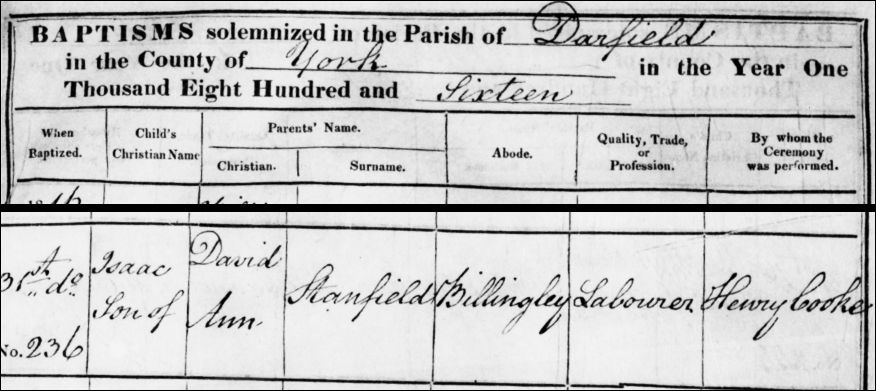 BAPTISMS solemnized in the Parish of Darfield
in the County of York in the Year One
Thousand Eight Hundred and Sixteen
When Baptized. Child's Christian Name Parents' Name. Abode. Quality, Trade, or Profession. By whom the Ceremony was performed.
Christian. Surname.
31st do Isaac Son of David Ann Stanfield Billingley Labourer Henry Cooke
No. 236